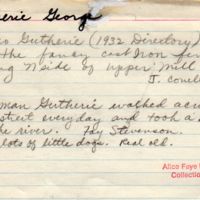 herie George
o Gutherie (1932 Directory)
the fancy cast Iron fe
ng N side of upper Mill
J. Coneli
man Gutherie walked acro
street everyday and took a
he river. Fay Stevenson.
lots of little dogs. Real old.
Alice Faye
Collection